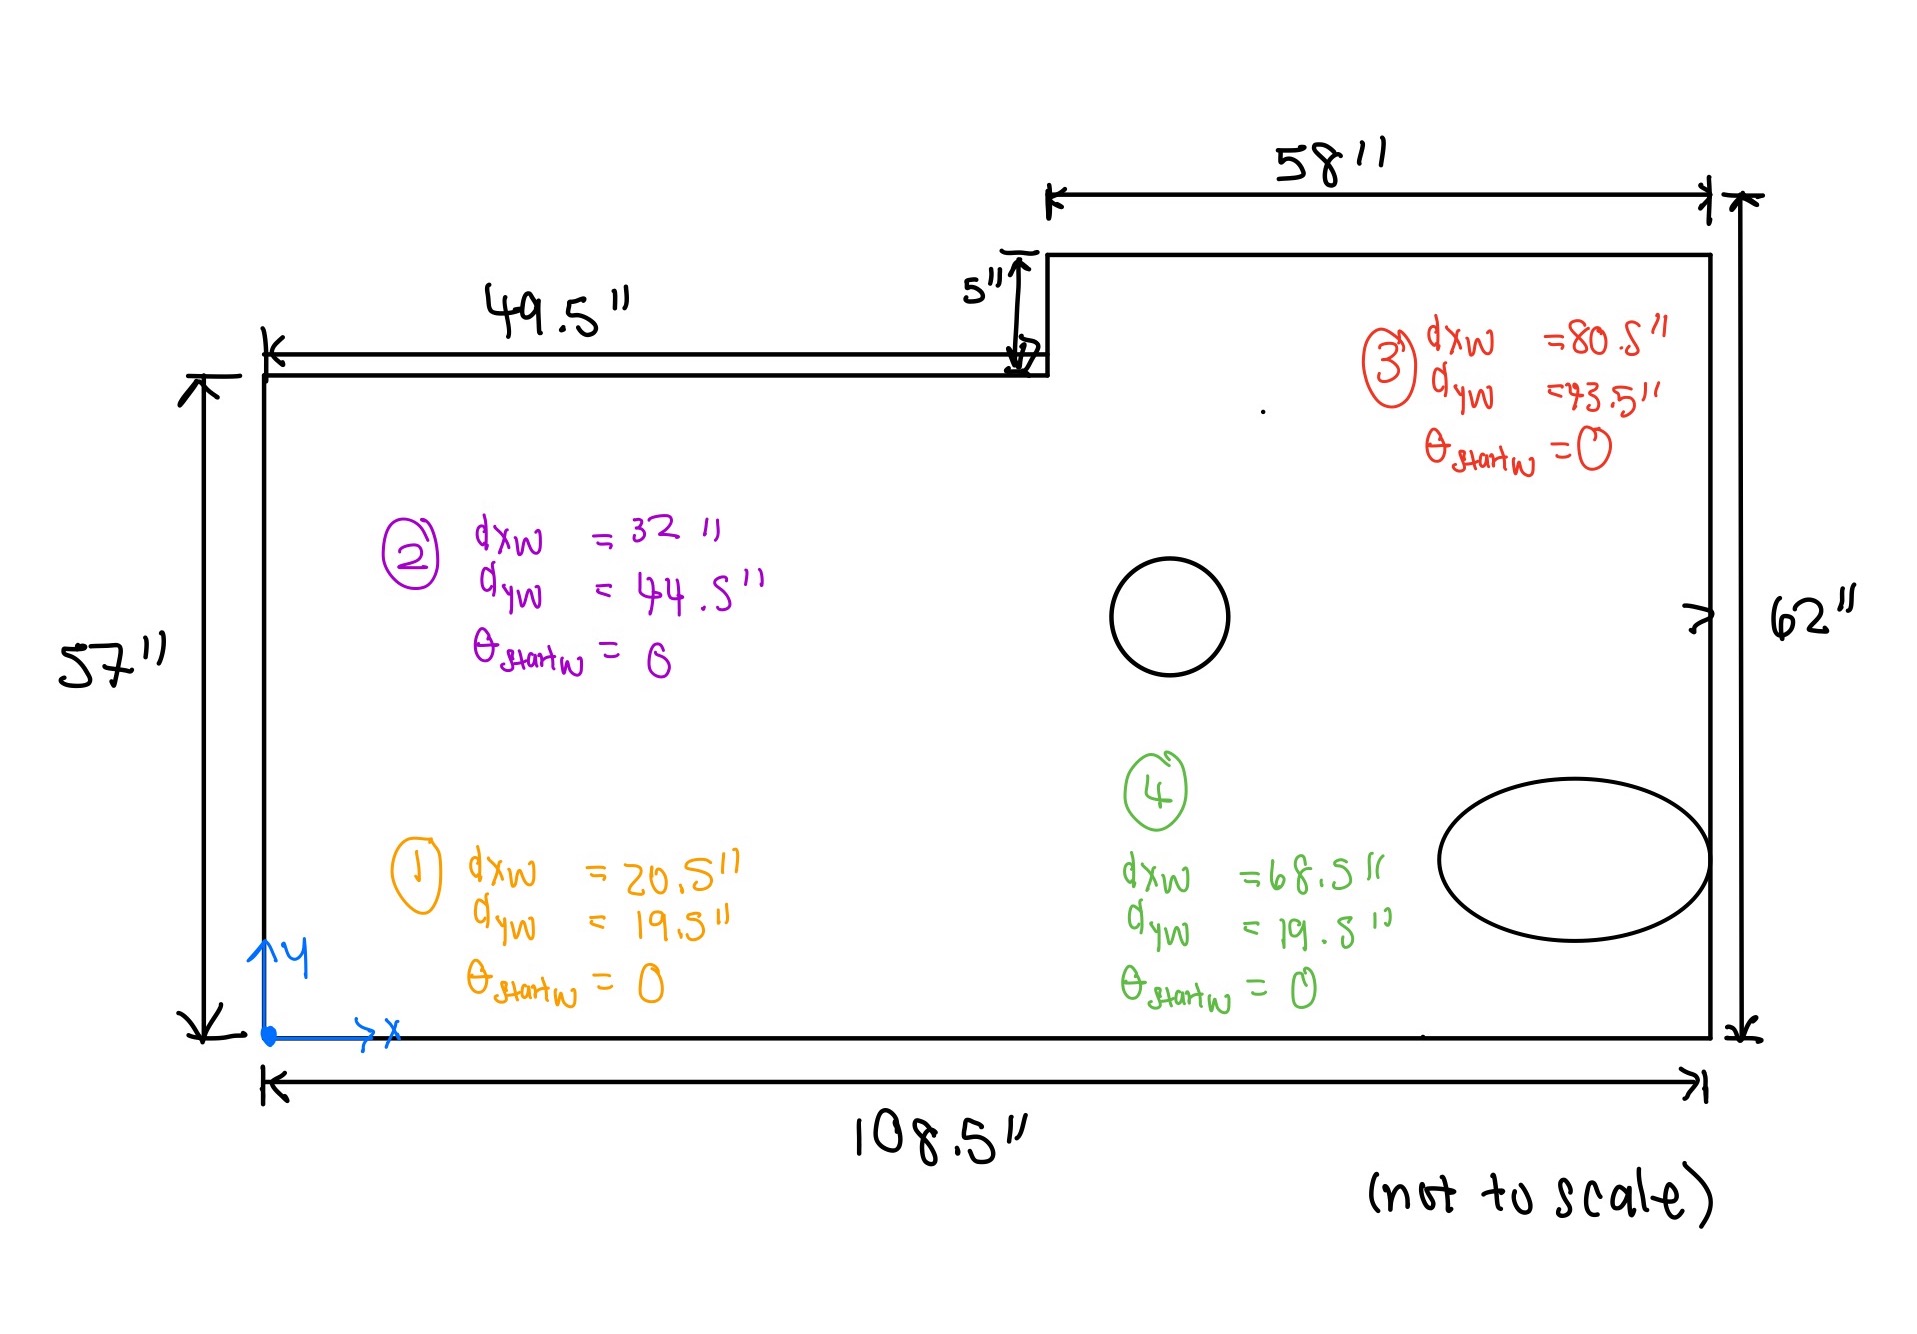 58"
49.5"
5"
3
dxw = 80.5"
dyw = 43.5"
θstartw = 0
2
dxw = 32"
dyw = 44.5"
θstartw = 0
57"
62"
4
1
dxw = 20.5"
dyw = 19.5"
θstartw = 0
dxw = 68.5"
dyw = 19.5"
θstartw = 0
y
x
108.5"
(not to scale)